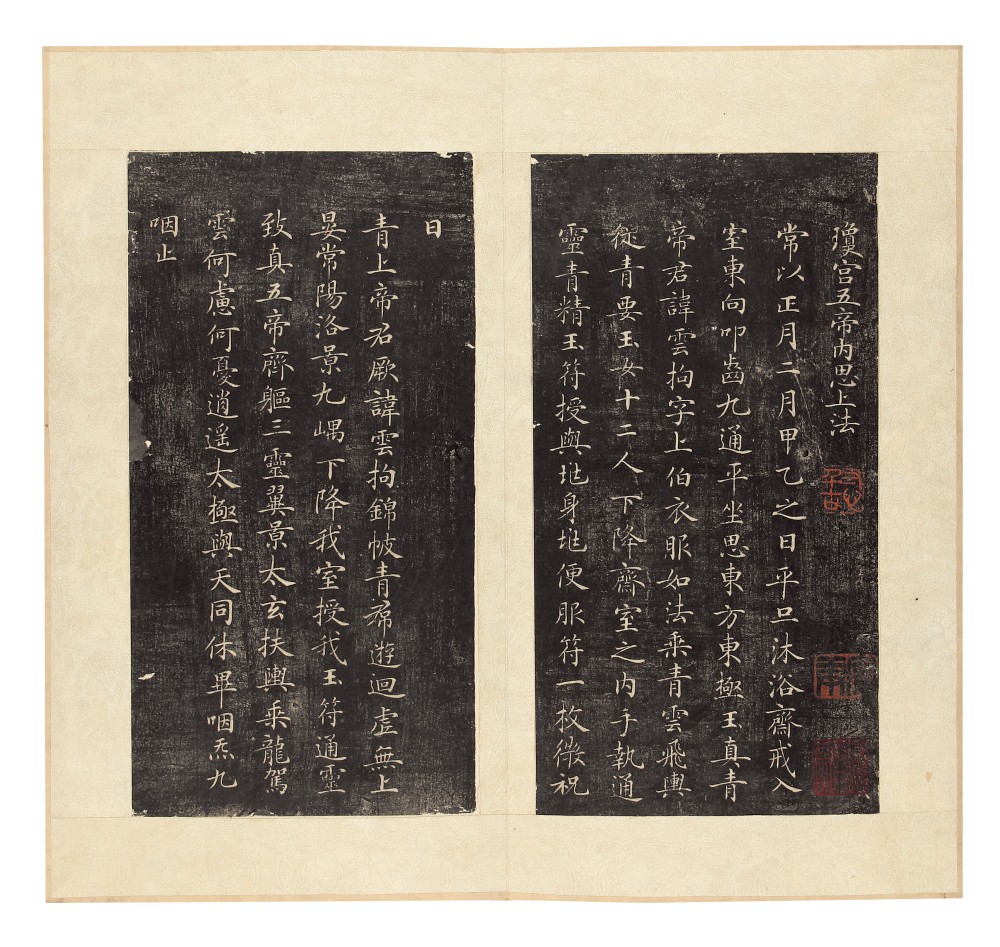 瓊宫五帝内思上法
常以正月二月甲乙之日平旦沐浴齋戒入
室東向叩齒九通平坐思東方東極玉真青
帝君諱雲拘字上伯衣服如法乘青雲飛輿
從青要玉女十二人下降齋室之内手執通
靈青精玉符授與地身地便服符一枚微祝
曰
青上帝君厥諱雲拘錦帔青帬遊迴虚無上
晏常陽洛景九嵎下降我室授我玉符通靈
致真五帝齊軀三靈翼景太玄扶輿乘龍駕
雲何慮何憂逍遥太極與天同休畢咽炁九
咽止